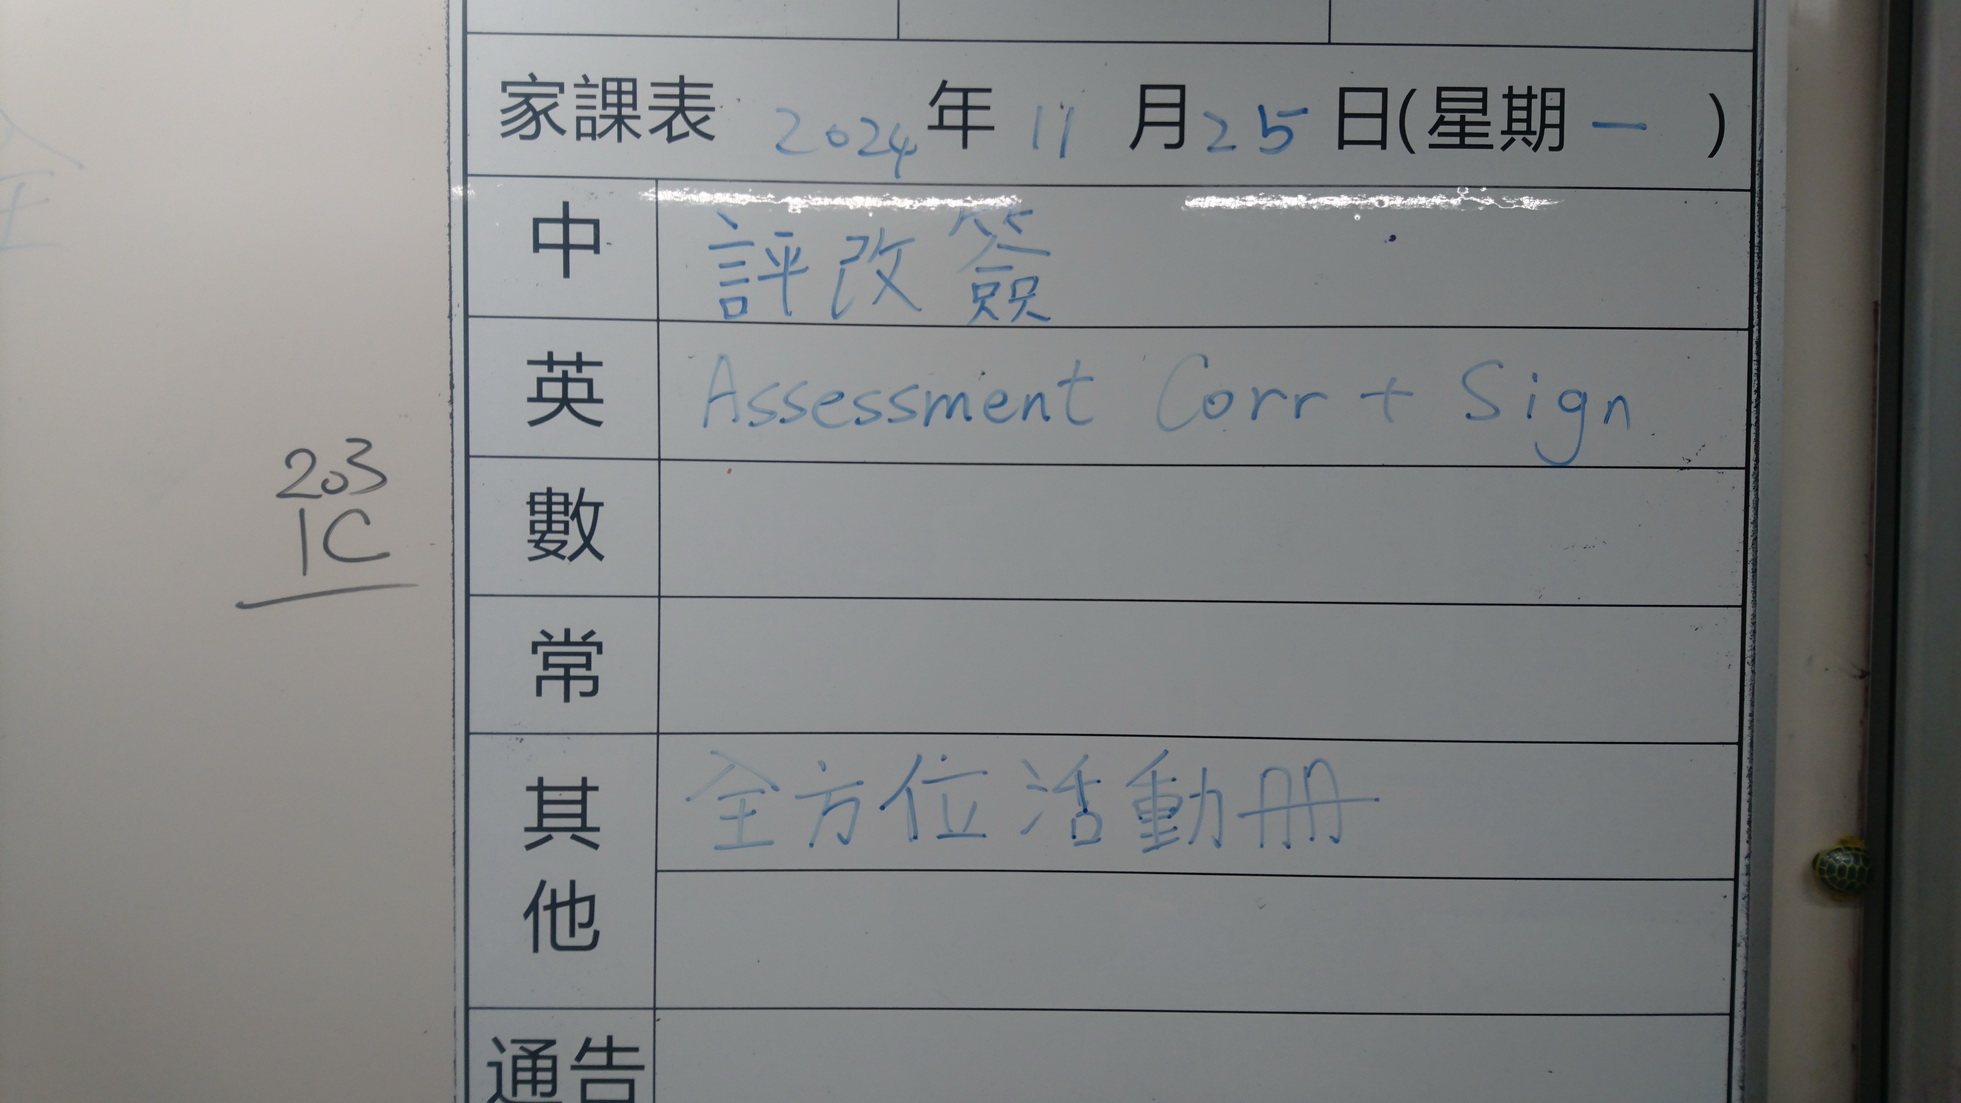 家課表 2024年 11月25日(星期一)
中 評改簽
英 Assessment Corr + Sign
203
1C
數
常
其他 全方位活動册
通告